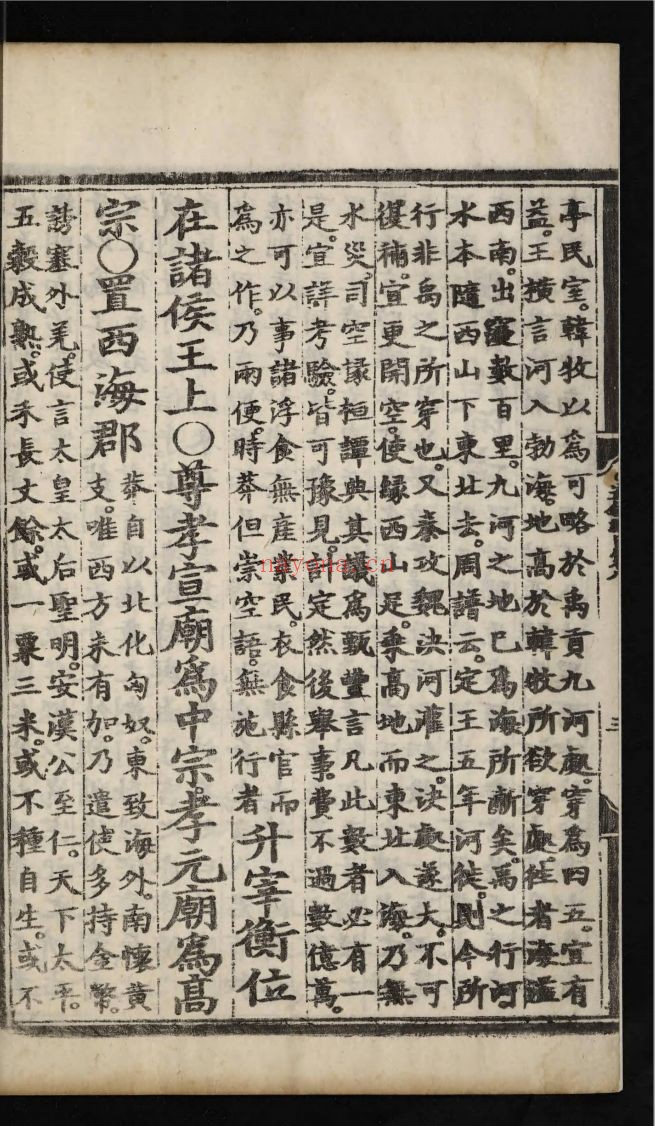 亭民室。韓牧以爲可略於禹貢九河處。穿爲四五。宜有
益。王橫言河入勃海。地高於韓牧所欲穿處。徃者海溢
西南。出寖數百里。九河之地已爲海所漸矣。禹之行河
水本隨西山下東北去。周譜云。定王五年河徙。則今所
行非禹之所穿也。又秦攻魏決河灌之。決處遂大。不可
復補。宜更開空。使緣西山足。乘高地而東北入海。乃無
水災。司空掾桓譚典其議爲甄豐言凡此數者必有一
是。宜詳考驗。皆可豫見。計定然後舉事。費不過數億萬。
亦可以事諸浮食無產業民。衣食縣官而
爲之作。乃兩便。時莽但崇空語。無施行者
升宰衡位
在諸侯王上○尊孝宣廟爲中宗。孝元廟爲高
宗○置西海郡
莽自以北化匈奴。東致海外。南懷黃
支。唯西方未有加。乃遣使多持金幣。
誘塞外羌。使言太皇太后聖明。安漢公至仁。天下太平。
五穀成熟。或禾長丈餘。或一粟三米。或不種自生。或不
三
nayona.cn